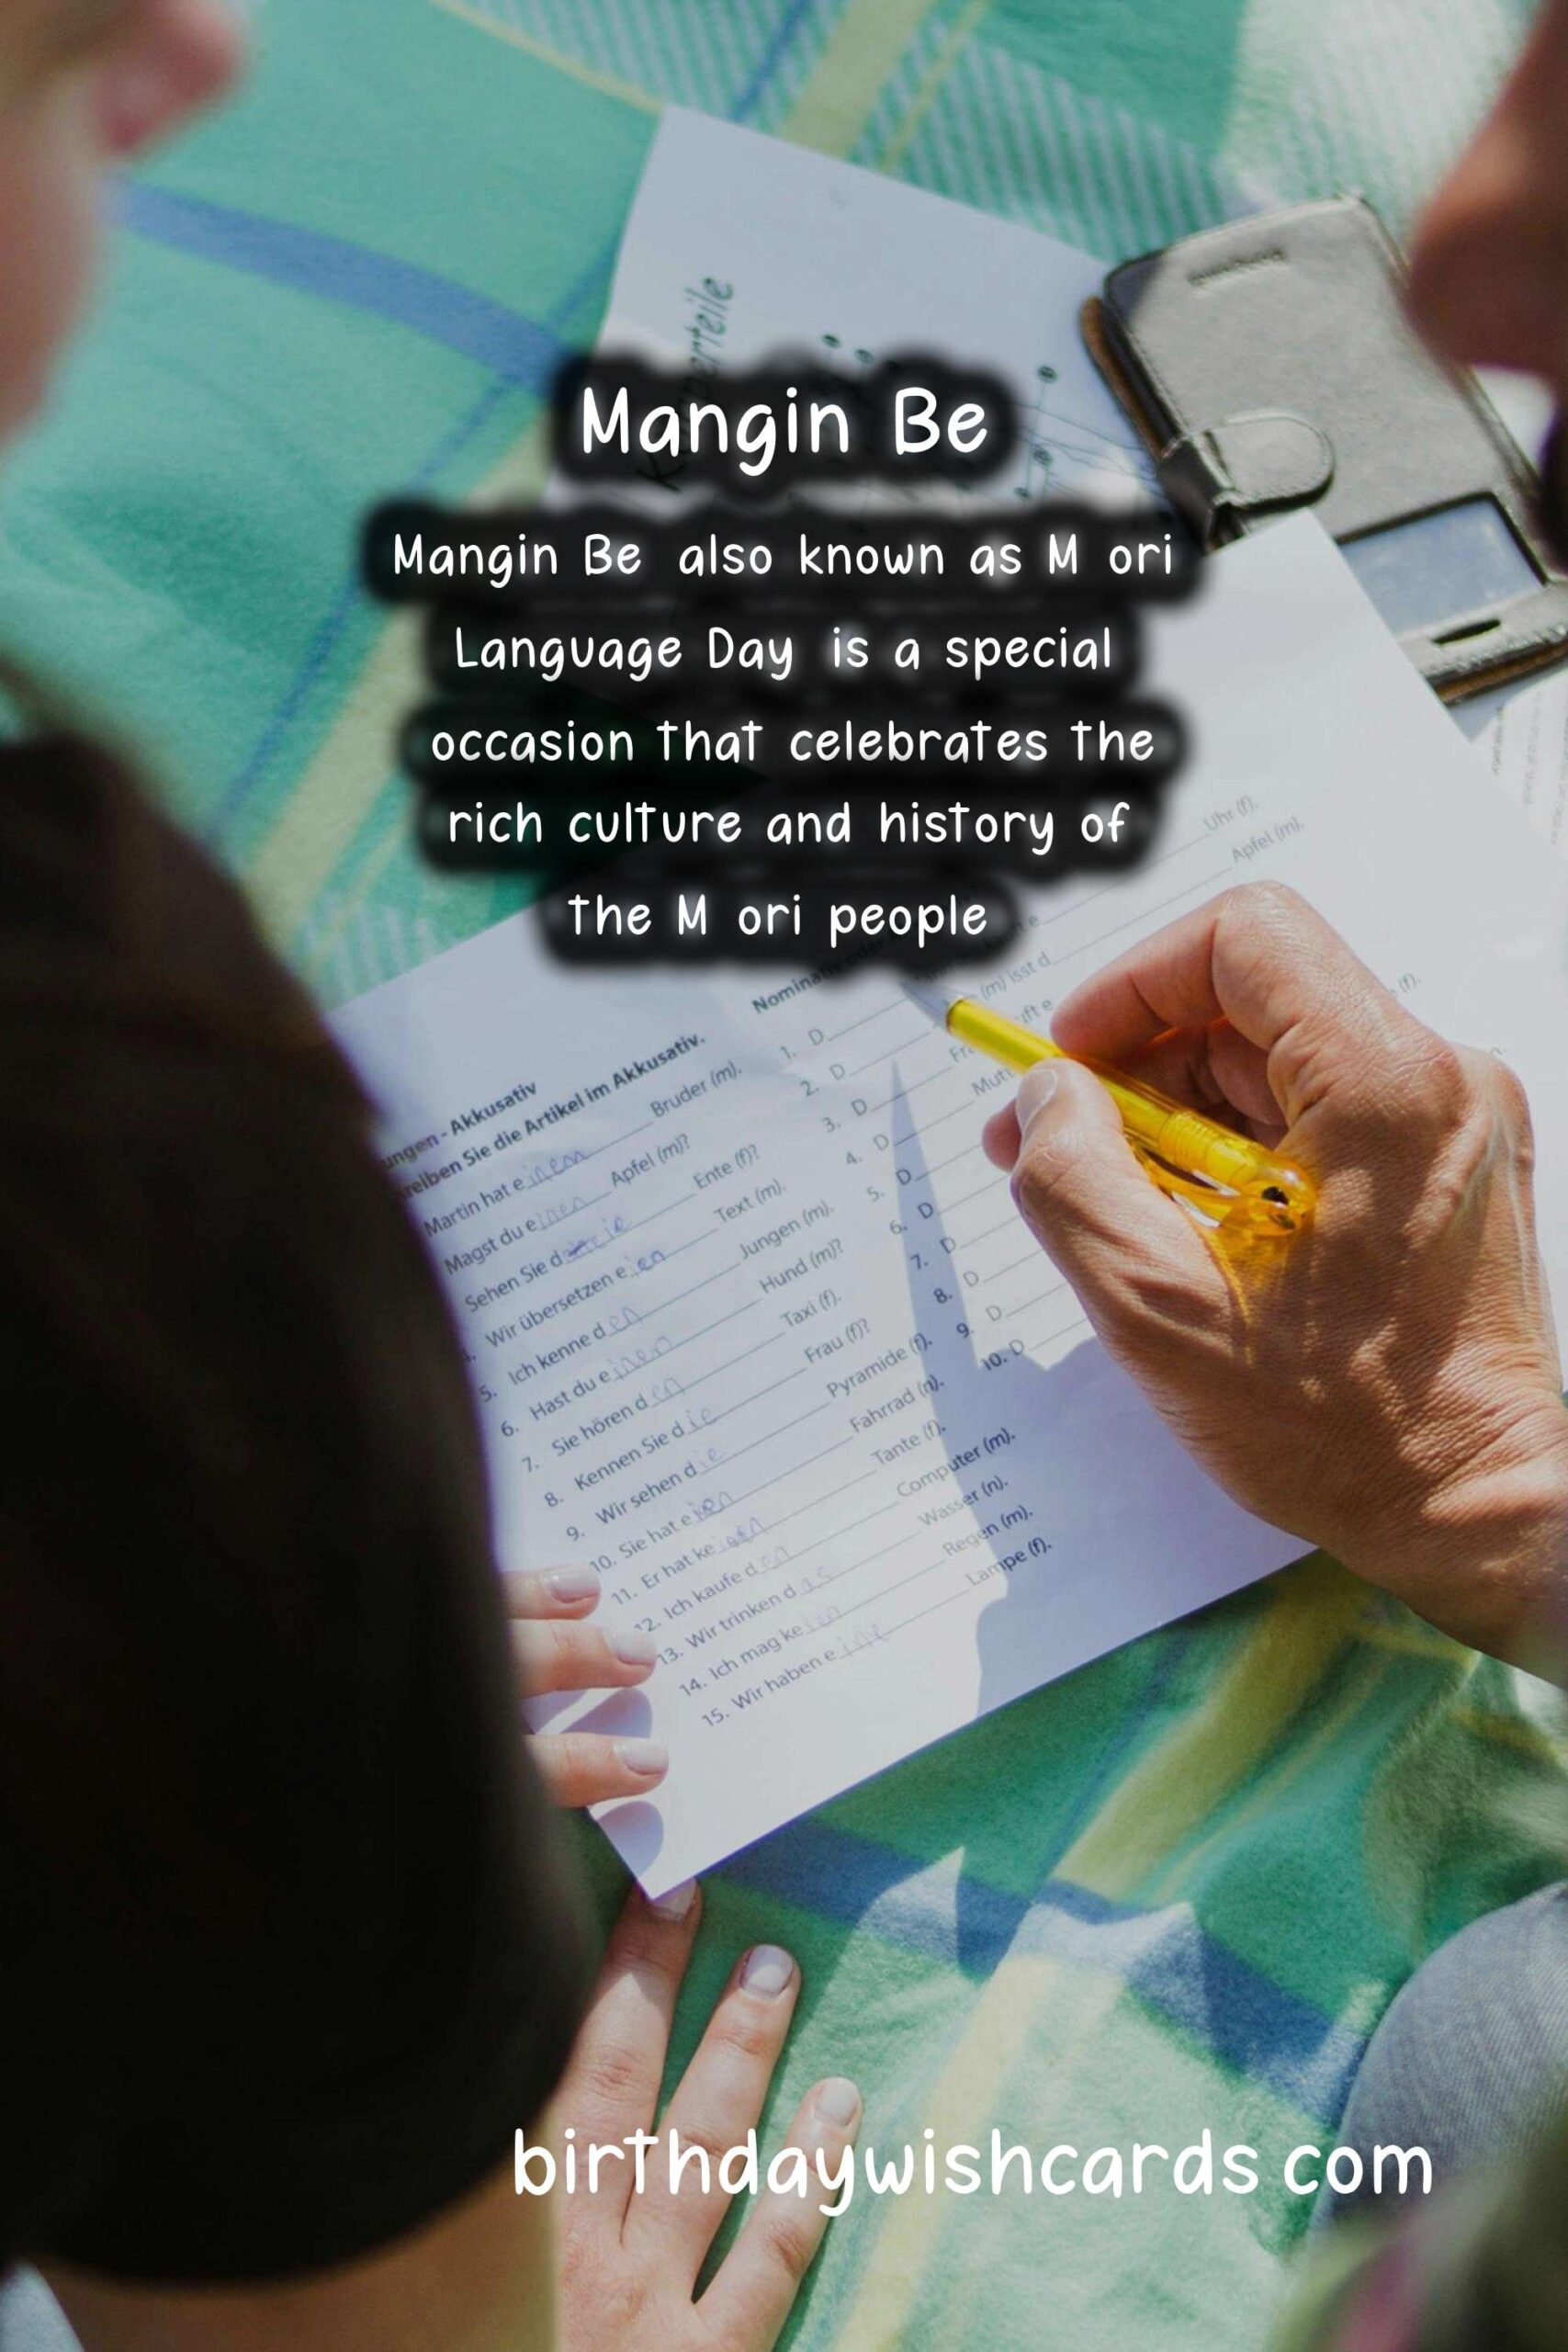 Mangin Be
Mangin Be also known as M ori
Language Day is a special
occasion that celebrates the
rich culture and history of
the M ori people
ngen - Akkusativ
reiben Sie die Artikel im Akkusativ.
Martin hat einen Bruder (m).
Magst du einen Apfel (m)?
Sehen Sie die Ente (f)?
Wir übersetzen e Text (m).
5. Ich kenne den Jungen (m).
6. Hast du einen Hund (m)?
7. Sie hören den Taxi (f).
8. Kennen Sie die Frau (f)?
9. Wir sehen die Pyramide (f).
10. Sie hat e Fahrrad (n).
11. Er hat ke Tante (f).
12. Ich kaufe den Computer (m).
13. Wir trinken das Wasser (n).
14. Ich mag ke Regen (m).
15. Wir haben eine Lampe (f).
Nominativ oder
1. D Uhr (f).
2. D (m) isst d Apfel (m).
3. D
4. D
5. D
6. D
7. D
8. D
9. D
10. D
birthdaywishcards com